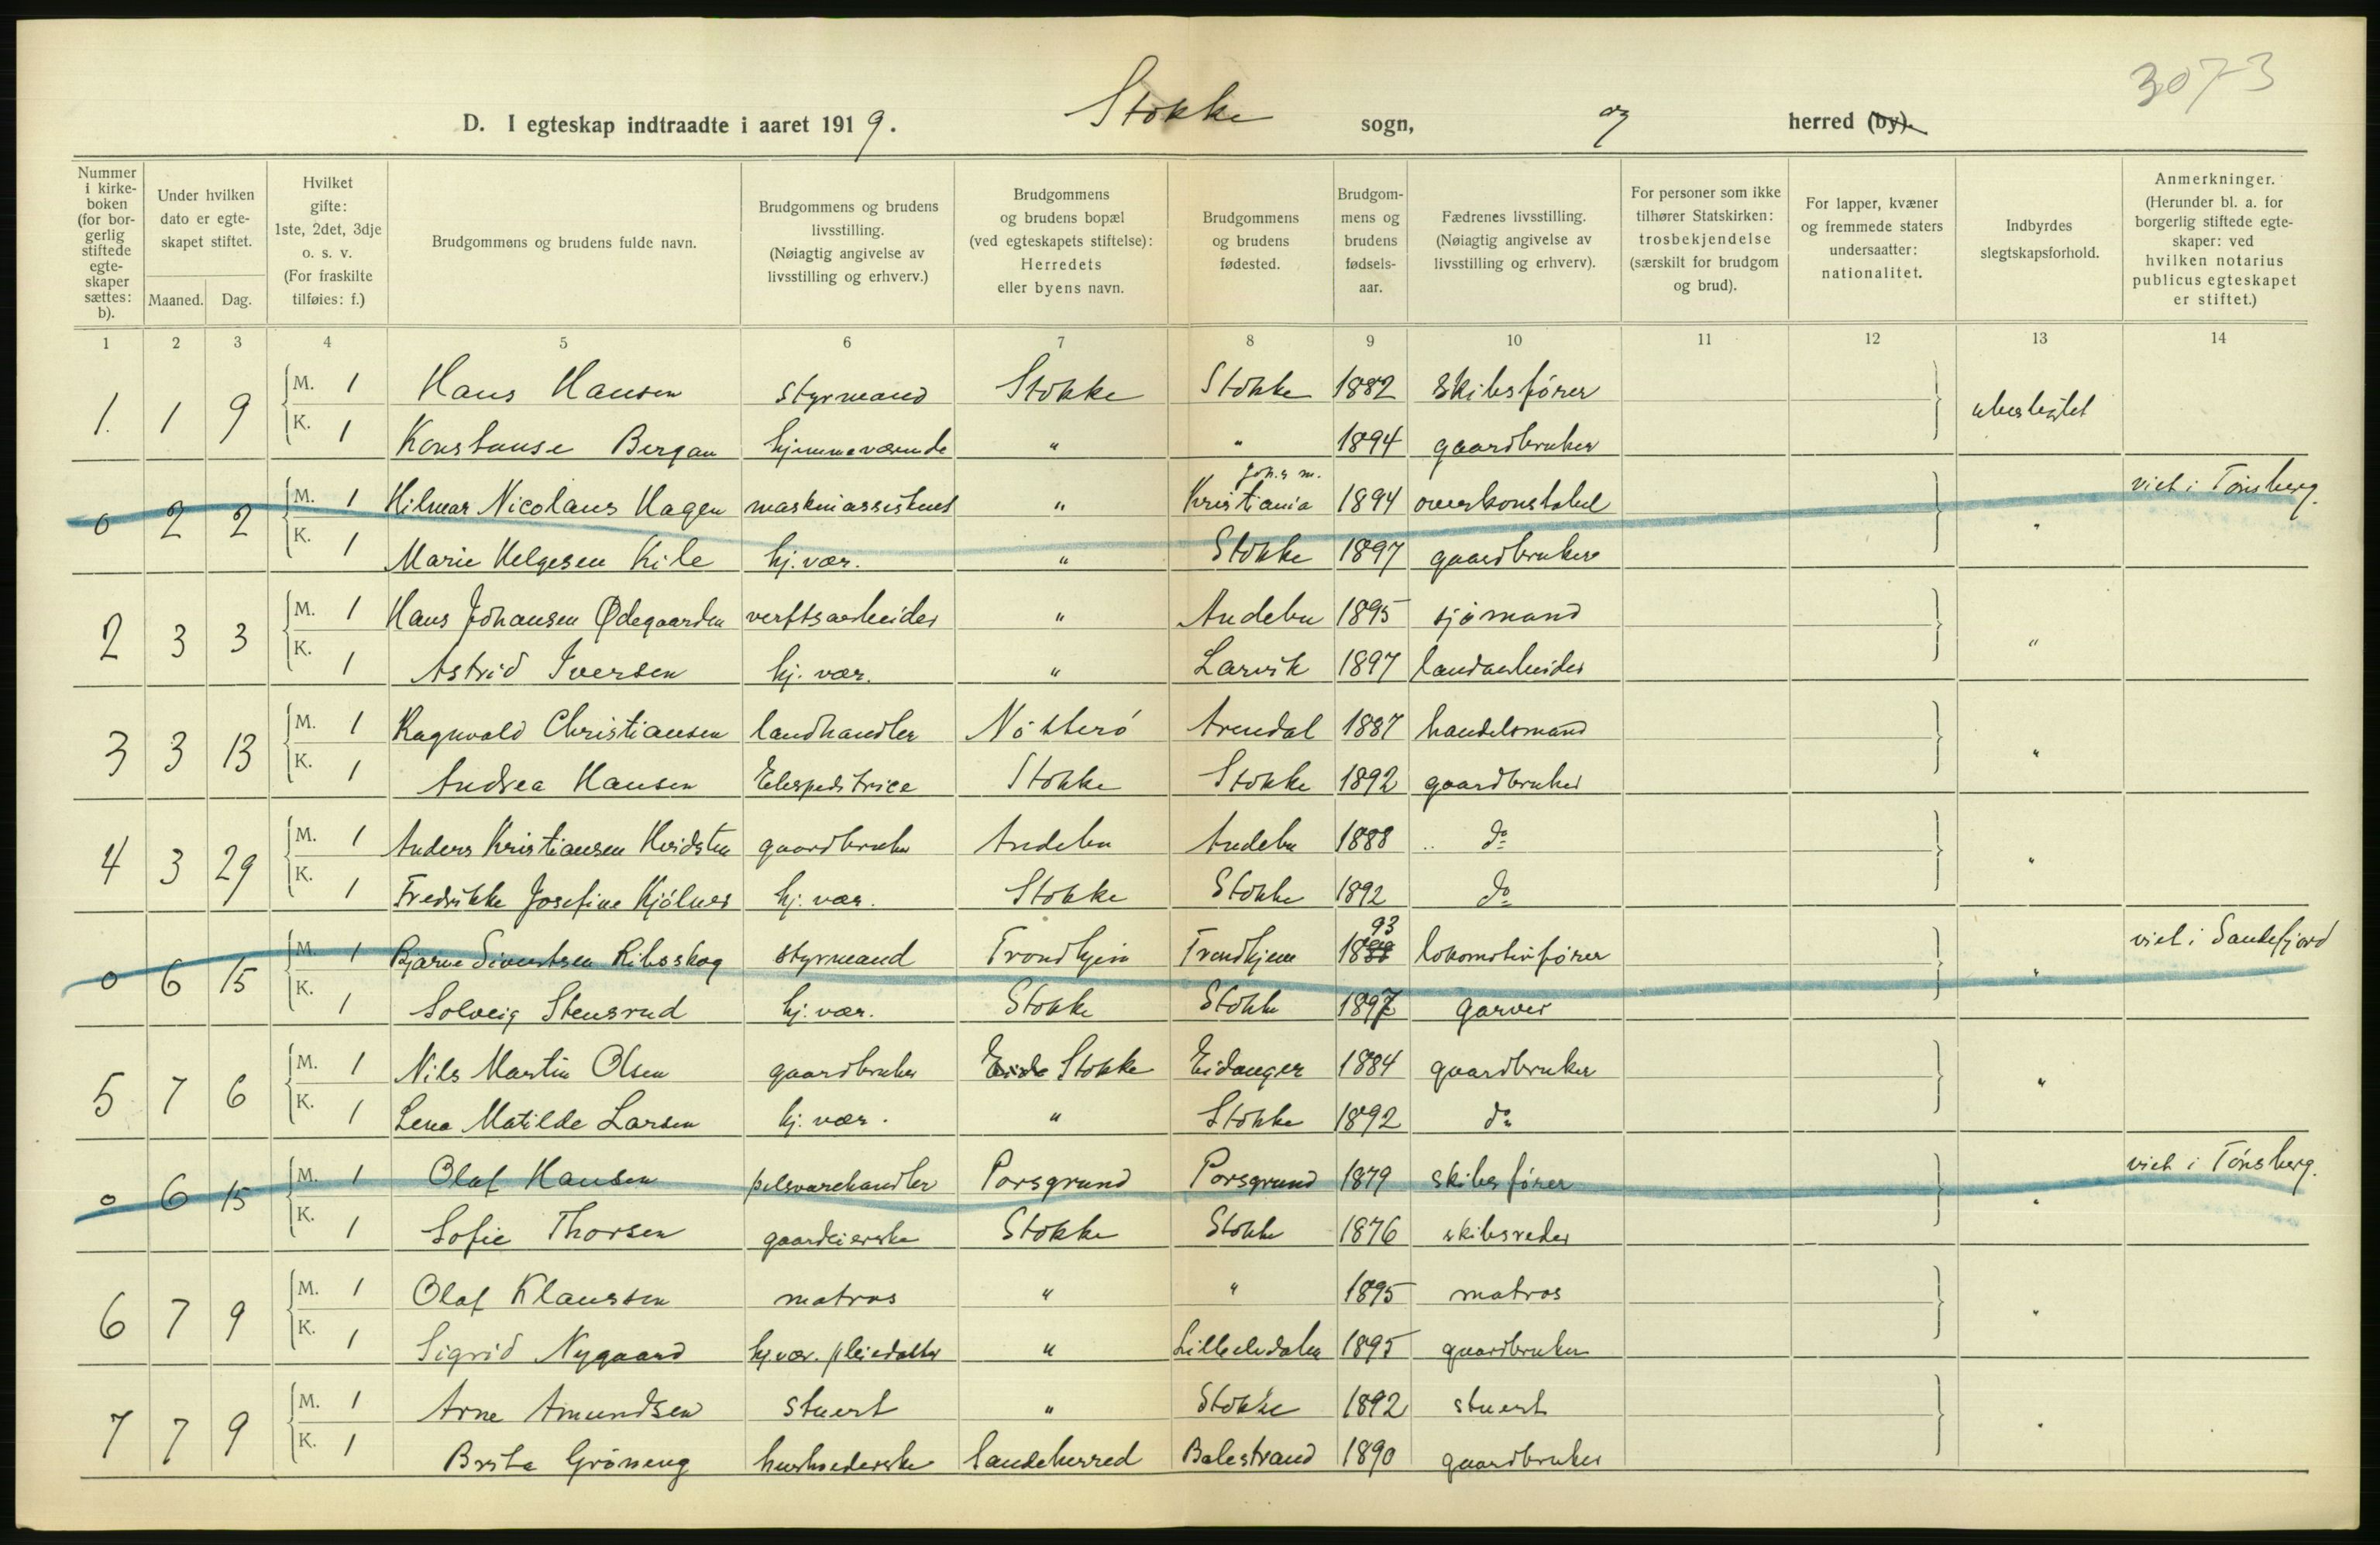 3073
D. I egteskap indtraadte i aaret 1919. Stokke sogn, og herred (by).
Nummer i kirkeboken (for borgerlig stiftede egteskaper sættes: b).
Under hvilken dato er egteskapet stiftet.
Maaned. Dag.
Hvilket gifte: 1ste, 2det, 3dje o. s. v. (For fraskilte tilføies: f.)
Brudgommens og brudens fulde navn.
Brudgommens og brudens livsstilling. (Nøiagtig angivelse av livsstilling og erhverv.)
Brudgommens og brudens bopæl (ved egteskapets stiftelse): Herredets eller byens navn.
Brudgommens og brudens fødested.
Brudgommens og brudens fødselsaar.
Fædrenes livsstilling. (Nøiagtig angivelse av livsstilling og erhverv).
For personer som ikke tilhører Statskirken: trosbekjendelse (særskilt for brudgom og brud).
For lapper, kvæner og fremmede staters undersaatter: nationalitet.
Indbyrdes slegtskapsforhold.
Anmerkninger. (Herunder bl. a. for borgerlig stiftede egteskaper: ved hvilken notarius publicus egteskapet er stiftet.)
1 2 3 4 5 6 7 8 9 10 11 12 13 14
1. 1 9 M. 1 Hans Hansen styrmand Stokke Stokke 1882 skibsfører ubeslegtet
K. 1 Konstanse Bergan hjemmeværende " " 1894 gaardbruker
0 2 2 M. 1 Hilmar Nicolaus Hagen maskinassistent " Kristiania 1894 overkonstabel " viet i Tønsberg.
K. 1 Marie Helgesen Kile hj. vær. " Stokke 1897 gaardbruker
2 3 3 M. 1 Hans Johansen Ødegaarden verftsarbeider " Andebu 1895 sjømand "
K. 1 Astrid Iversen hj. vær. " Larvik 1897 landarbeider
3 3 13 M. 1 Ragnvald Christiansen landhandler Nøtterø Arendal 1887 handelsmand "
K. 1 Andrea Hansen Ekspeditrice Stokke Stokke 1892 gaardbruker
4 3 29 M. 1 Anders Kristiansen Hvidsten gaardbruker Andebu Andebu 1888 .. do "
K. 1 Fredrikke Josefine Kjølnes hj. vær. Stokke Stokke 1892 do
0 6 15 M. 1 Bjarne Sivertsen Ribsskog styrmand Trondhjem Trondhjem 1893 lokomotivfører " viet i Sandefjord
K. 1 Solveig Stensrud hj. vær. Stokke Stokke 1897 garver
5 7 6 M. 1 Nils Martin Olsen gaardbruker Stokke Eidanger 1884 gaardbruker "
K. 1 Lena Matilde Larsen hj. vær. " Stokke 1892 do
0 6 15 M. 1 Olaf Hansen pelsvarehandler Porsgrund Porsgrund 1879 skibsfører " viet i Tønsberg.
K. 1 Sofie Thorsen gaardeierske Stokke Stokke 1876 skibsreder
6 7 9 M. 1 Olaf Klaussen matros " " 1895 matros "
K. 1 Sigrid Nygaard hj. vær. pleiedatter " 1895 gaardbruker
7 7 9 M. 1 Arne Amundsen stuert " Stokke 1892 stuert "
K. 1 Brita Grøneng husholderske Sandeherred Balestrand 1890 gaardbruker